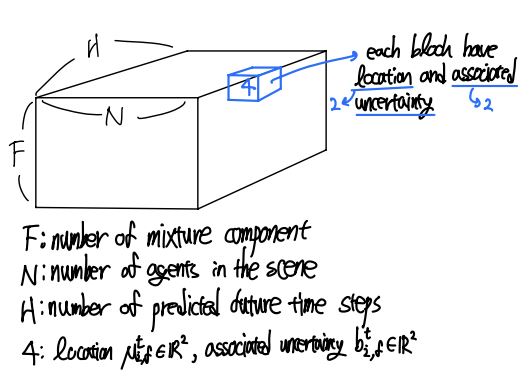 H
each block have
location and associated
uncertainty
2
2
4
N
F
F: number of mixture component
N: number of agents in the scene
H: number of predicted future time steps
4: location μᵗᵢ,f ∈ ℝ², associated uncertainty bᵗᵢ,f ∈ ℝ²